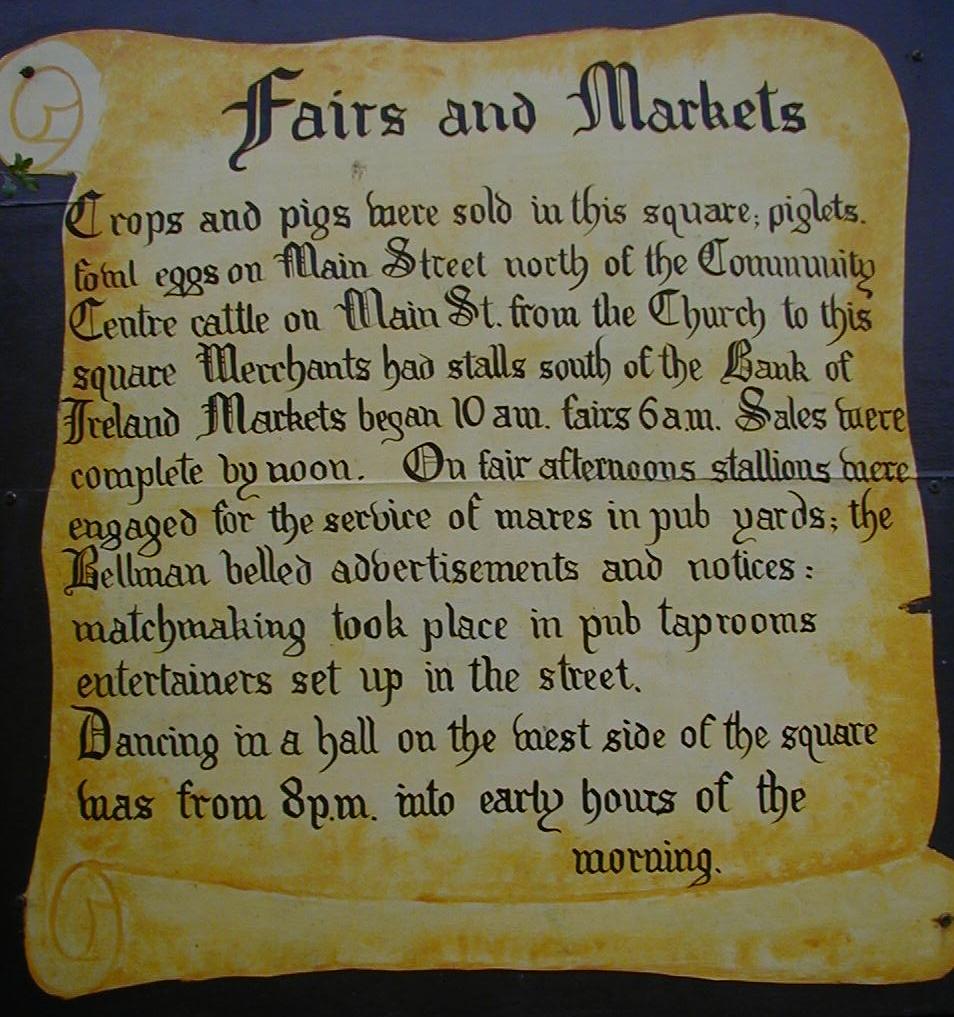 Fairs and Markets
Crops and pigs were sold in this square; piglets.
fowl eggs on Main Street north of the Community
Centre cattle on Main St. from the Church to this
square Merchants had stalls south of the Bank of
Ireland Markets began 10 am. fairs 6 a.m. Sales were
complete by noon. On fair afternoons stallions were
engaged for the service of mares in pub yards; the
Bellman belled advertisements and notices:
matchmaking took place in pub taprooms
entertainers set up in the street.
Dancing in a hall on the west side of the square
was from 8p.m. into early hours of the
morning.